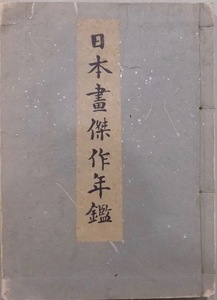 日本畫傑作年鑑